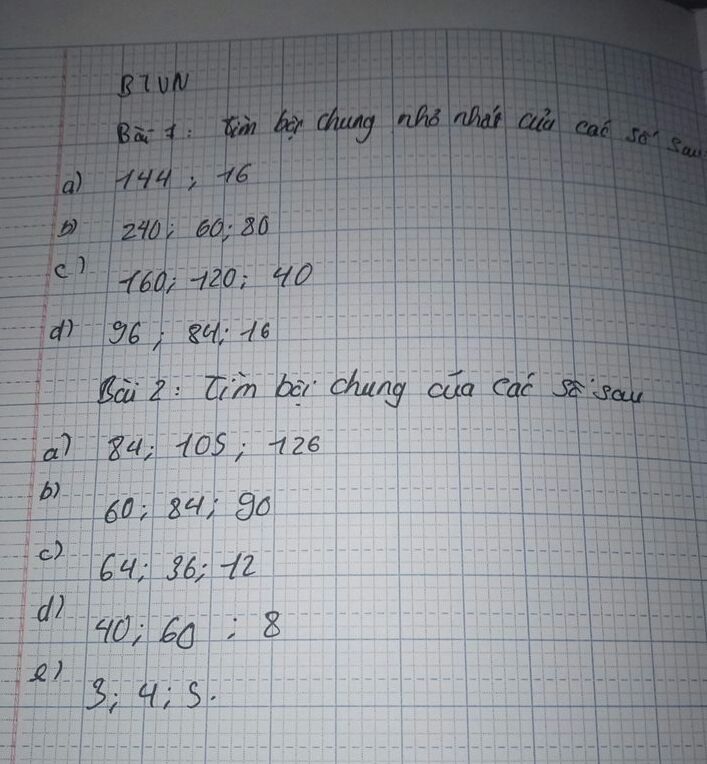 BTVN
Bài 1: Tìm bội chung nhỏ nhất của các số sau
a) 144; 16
b) 240; 60; 80
c) 160; 120; 40
d) 96; 84; 16
Bài 2: Tìm bội chung của các số sau
a) 84; 105; 126
b) 60; 84; 90
c) 64; 36; 12
d) 40; 60; 8
e) 3; 4; 5.